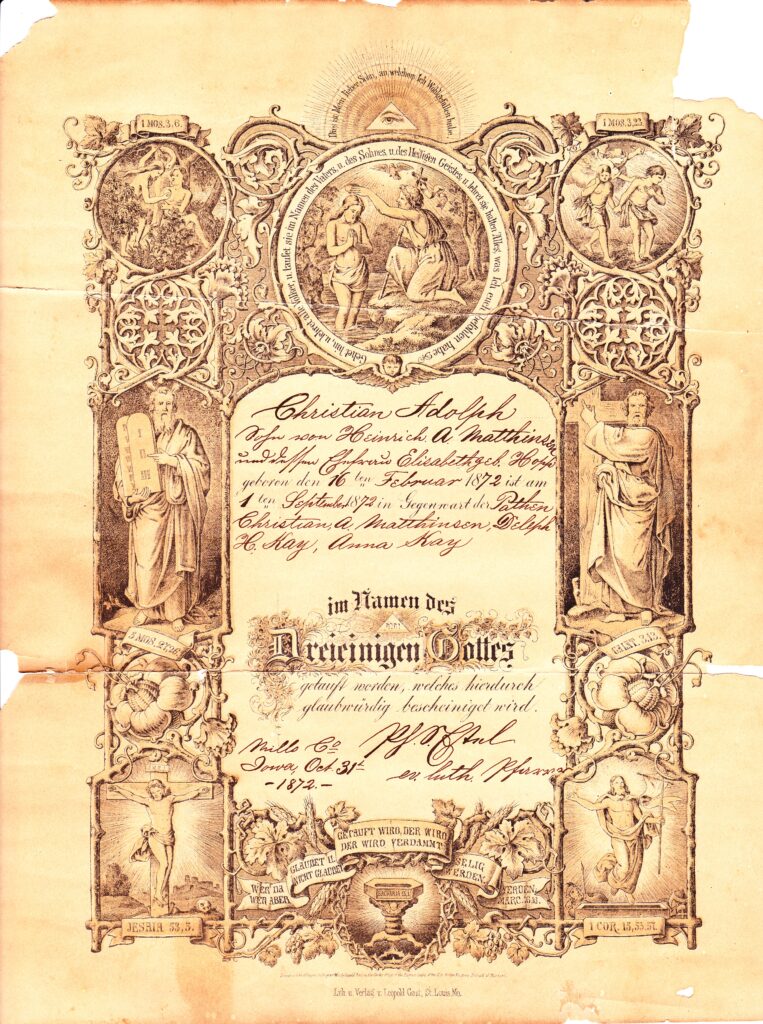 Dies ist Mein lieber Sohn, an welchem Ich Wohlgefallen habe.
1 MOS. 3. 6.
1 MOS. 3. 23.
Gehet hin, u. lehret alle Völker, u. taufet sie im Namen des Vaters, u. des Sohnes, u. des Heiligen Geistes, u. lehret sie halten Alles, was Ich euch befohlen habe
Christian Adolph
Sohn von Heinrich A Matthinsen
und dessen Ehefrau Elisabeth geb. Hopp
geboren den 16 ten Februar 1872 ist am
1 ten September 1872 in Gegenwart der Pathen
Christian, A. Matthinsen,
H. Kay, Anna Kay
im Namen des
Dreieinigen Gottes
getauft worden, welches hierdurch
glaubwürdig bescheiniget wird.
Mills Co
Iowa, Oct. 31st
-1872.-
ev. luth. Pfarrer
GETAUFT WIRD, DER WIRD
DER WIRD VERDAMMT
GLAUBET U.
NICHT GLAUBET
SELIG
WERDEN
WER DA
WER ABER
WERDEN
MARC. 16. 16.
JESAIA 53, 5.
1 COR. 15, 55. 57.
Lith. u. Verlag v. Leopold Gast, St. Louis Mo.